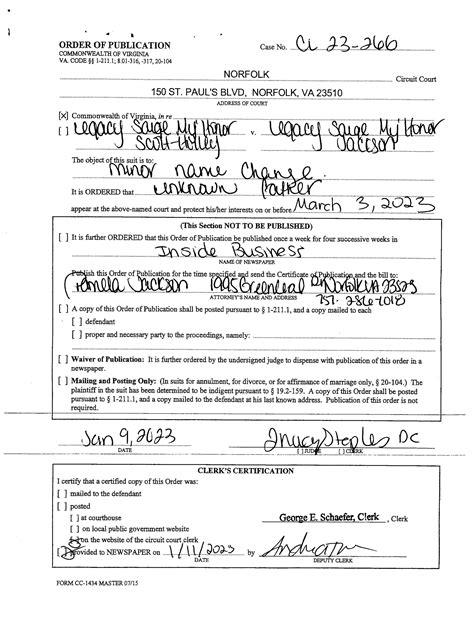 ORDER OF PUBLICATION
COMMONWEALTH OF VIRGINIA
VA. CODE §§ 1-211.1; 8.01-316, -317, 20-104
Case No. CL 23-266
NORFOLK
Circuit Court
150 ST. PAUL'S BLVD, NORFOLK, VA 23510
ADDRESS OF COURT
[X] Commonwealth of Virginia, in re
[ ] Legacy Saige My'Honor v. Legacy Saige My'Honor
Scott-Holley Jackson
The object of this suit is to:
Minor Name Change.
It is ORDERED that unknown Father
appear at the above-named court and protect his/her interests on or before March 3, 2023
(This Section NOT TO BE PUBLISHED)
[ ] It is further ORDERED that this Order of Publication be published once a week for four successive weeks in
Inside Business
NAME OF NEWSPAPER
Publish this Order of Publication for the time specified and send the Certificate of Publication and the bill to:
Pamela Jackson 1995 Greenleaf Dr Norfolk VA 23523
ATTORNEY'S NAME AND ADDRESS 757-286-7018
[ ] A copy of this Order of Publication shall be posted pursuant to § 1-211.1, and a copy mailed to each
[ ] defendant
[ ] proper and necessary party to the proceedings, namely:
[ ] Waiver of Publication: It is further ordered by the undersigned judge to dispense with publication of this order in a
newspaper.
[ ] Mailing and Posting Only: (In suits for annulment, for divorce, or for affirmance of marriage only, § 20-104.) The
plaintiff in the suit has been determined to be indigent pursuant to § 19.2-159. A copy of this Order shall be posted
pursuant to § 1-211.1, and a copy mailed to the defendant at his last known address. Publication of this order is not
required.
Jan 9, 2023 Tracy Staples DC
DATE [ ] JUDGE [ ] CLERK
CLERK'S CERTIFICATION
I certify that a certified copy of this Order was:
[ ] mailed to the defendant
[ ] posted
[ ] at courthouse George E. Schaefer, Clerk , Clerk
[ ] on local public government website
on the website of the circuit court clerk
provided to NEWSPAPER on 1/11/2023 by
DATE DEPUTY CLERK
FORM CC-1434 MASTER 07/15